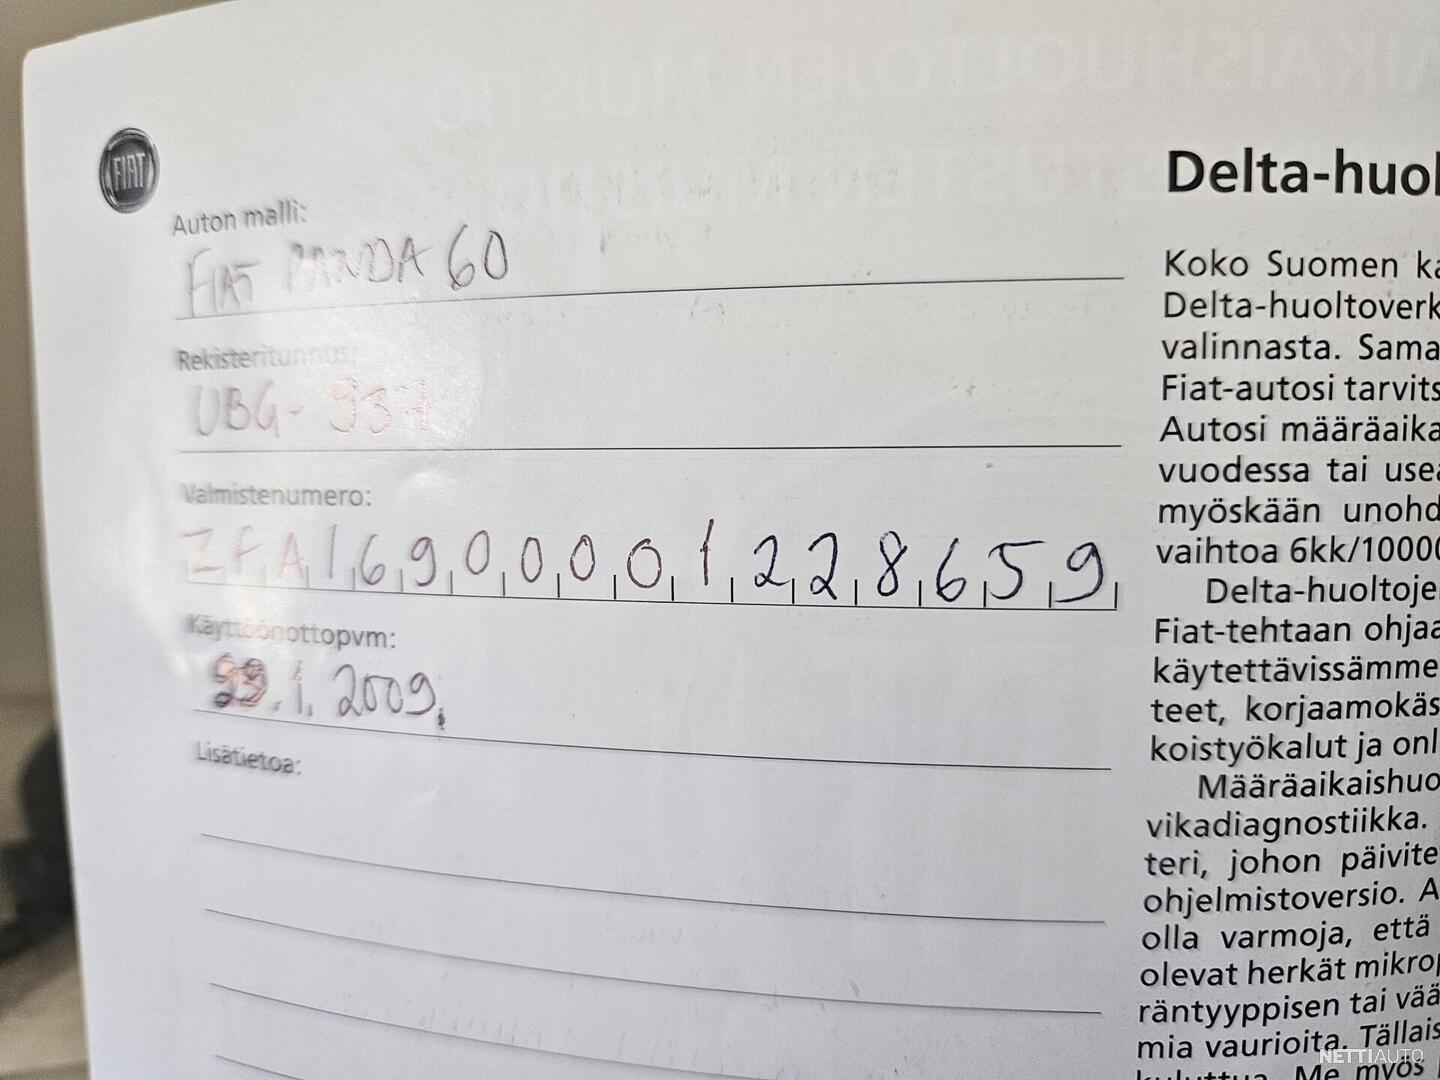 FIAT
Auton malli:
FIAT PANDA 60
Rekisteritunnus:
UBG-937
Valmistenumero:
ZFA16900001228659
Käyttöönottopvm:
29.1.2009.
Lisätietoa:
Delta-huol
Koko Suomen ka
Delta-huoltoverk
valinnasta. Sama
Fiat-autosi tarvits
Autosi määräaika
vuodessa tai usea
myöskään unohd
vaihtoa 6kk/10000
Delta-huoltoje
Fiat-tehtaan ohjaa
käytettävissämme
teet, korjaamokäs
koistyökalut ja onl
Määräaikaishuo
vikadiagnostiikka.
teri, johon päivite
ohjelmistoversio. A
olla varmoja, että
olevat herkät mikrop
räntyyppisen tai vää
mia vaurioita. Tällais
kuluttua. Me myös
NETTIAUTO